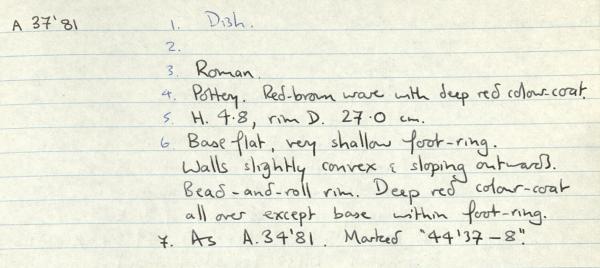 A 37'81 1. Dish.
2.
3. Roman.
4. Pottery. Red-brown ware with deep red colour-coat.
5. H. 4.8, rim D. 27.0 cm.
6 Base flat, very shallow foot-ring.
Walls slightly convex & sloping outwards.
Bead-and-roll rim. Deep red colour-coat
all over except base within foot-ring.
7. As A.34'81. Marked "44'37-8".